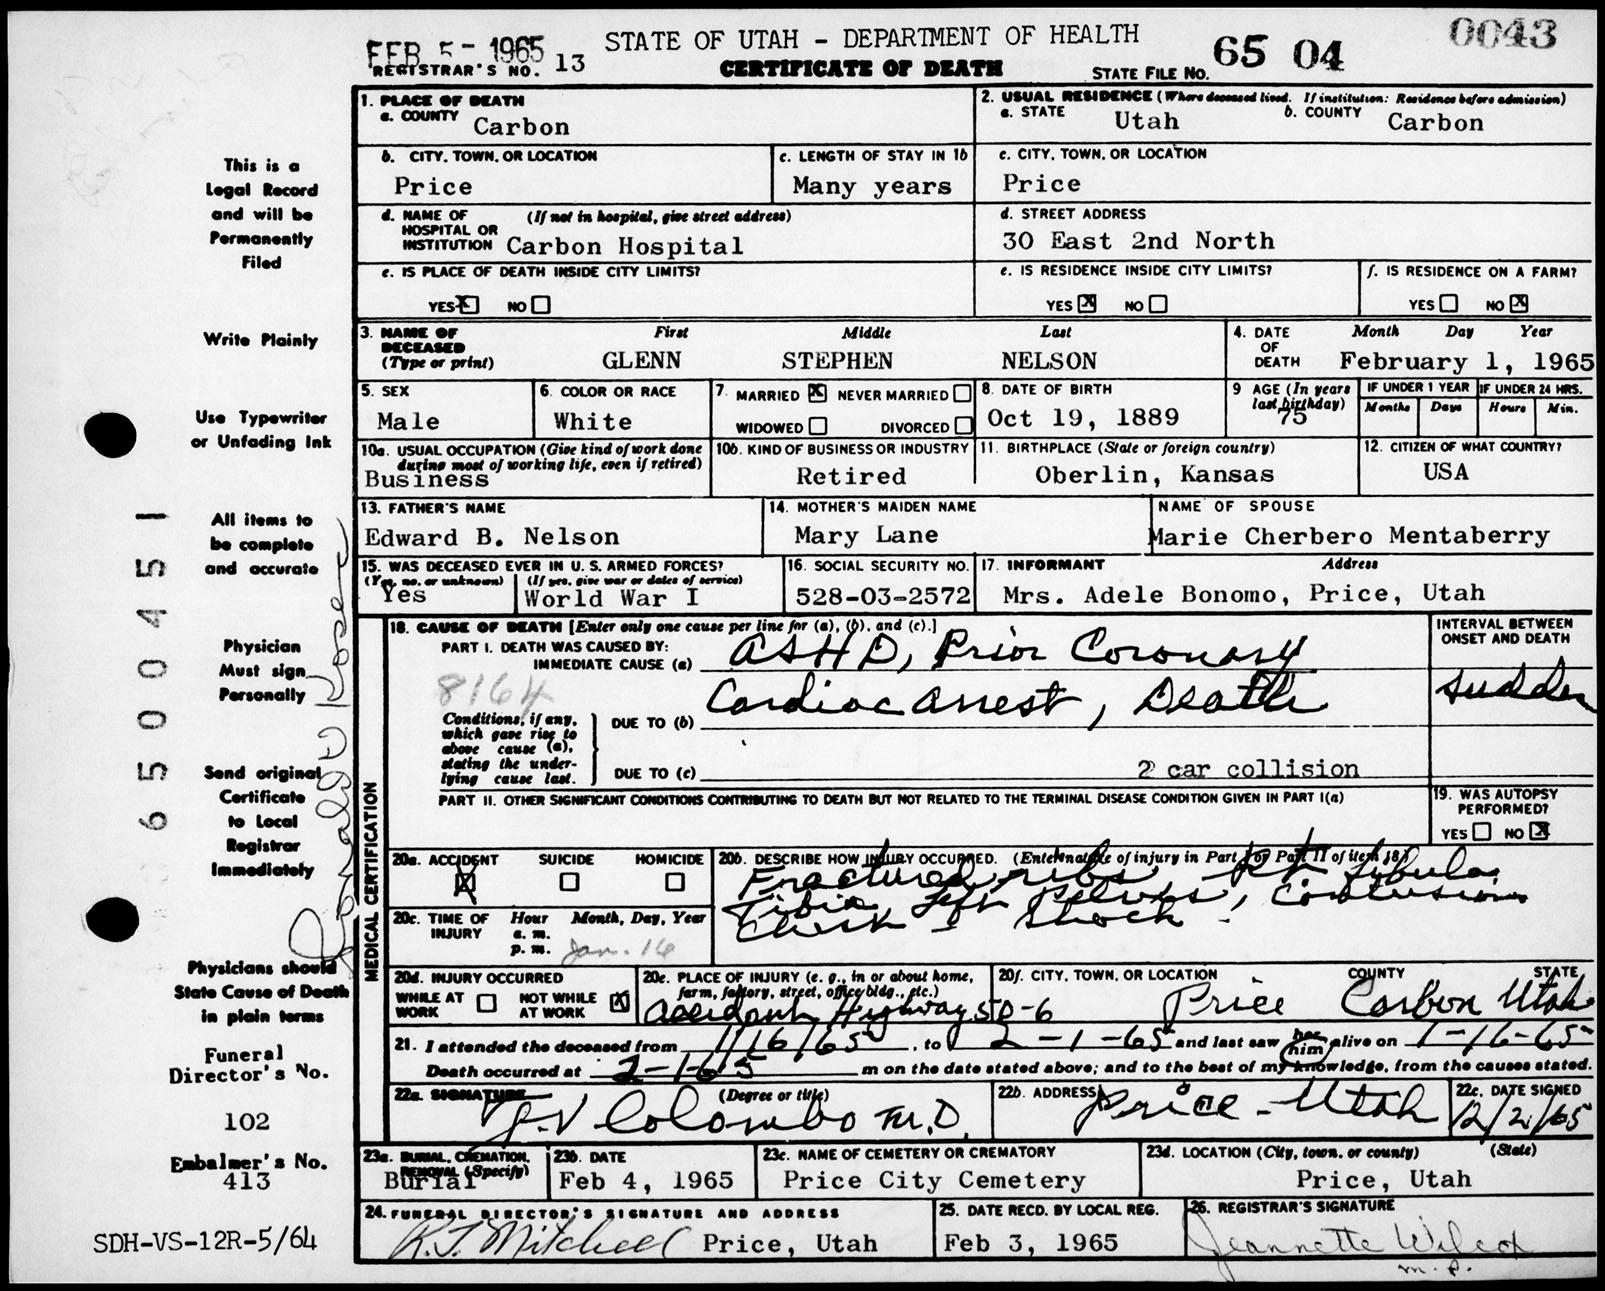 FEB 5 - 1965
STATE OF UTAH - DEPARTMENT OF HEALTH
0043
REGISTRAR'S NO. 13
CERTIFICATE OF DEATH
STATE FILE NO. 65 04
1. PLACE OF DEATH
a. COUNTY Carbon
2. USUAL RESIDENCE (Where deceased lived. If institution: Residence before admission)
a. STATE Utah b. COUNTY Carbon
b. CITY, TOWN, OR LOCATION
Price
c. LENGTH OF STAY IN 1b
Many years
c. CITY, TOWN, OR LOCATION
Price
d. NAME OF HOSPITAL OR INSTITUTION (If not in hospital, give street address)
Carbon Hospital
d. STREET ADDRESS
30 East 2nd North
e. IS PLACE OF DEATH INSIDE CITY LIMITS?
YES X NO
e. IS RESIDENCE INSIDE CITY LIMITS?
YES X NO
f. IS RESIDENCE ON A FARM?
YES NO X
3. NAME OF DECEASED (Type or print)
First Middle Last
GLENN STEPHEN NELSON
4. DATE OF DEATH Month Day Year
February 1, 1965
5. SEX
Male
6. COLOR OR RACE
White
7. MARRIED X NEVER MARRIED
WIDOWED DIVORCED
8. DATE OF BIRTH
Oct 19, 1889
9 AGE (In years last birthday)
75
IF UNDER 1 YEAR
Months Days
IF UNDER 24 HRS.
Hours Min.
10a. USUAL OCCUPATION (Give kind of work done during most of working life, even if retired)
Business
10b. KIND OF BUSINESS OR INDUSTRY
Retired
11. BIRTHPLACE (State or foreign country)
Oberlin, Kansas
12. CITIZEN OF WHAT COUNTRY?
USA
13. FATHER'S NAME
Edward B. Nelson
14. MOTHER'S MAIDEN NAME
Mary Lane
NAME OF SPOUSE
Marie Cherbero Mentaberry
15. WAS DECEASED EVER IN U. S. ARMED FORCES?
(Yes, no, or unknown) (If yes, give war or dates of service)
Yes World War I
16. SOCIAL SECURITY NO.
528-03-2572
17. INFORMANT Address
Mrs. Adele Bonomo, Price, Utah
18. CAUSE OF DEATH [Enter only one cause per line for (a), (b), and (c).]
PART I. DEATH WAS CAUSED BY:
IMMEDIATE CAUSE (a) ASHD, Prior Coronary
INTERVAL BETWEEN ONSET AND DEATH
8164
Conditions, if any, which gave rise to above cause (a), stating the underlying cause last.
DUE TO (b) Cardiac arrest, Death
sudden
DUE TO (c) 2 car collision
PART II. OTHER SIGNIFICANT CONDITIONS CONTRIBUTING TO DEATH BUT NOT RELATED TO THE TERMINAL DISEASE CONDITION GIVEN IN PART I(a)
19. WAS AUTOPSY PERFORMED?
YES NO X
MEDICAL CERTIFICATION
20a. ACCIDENT SUICIDE HOMICIDE
X
20b. DESCRIBE HOW INJURY OCCURRED. (Enter nature of injury in Part I or Part II of item 18)
Fractured ribs, Rt fibula
Tibia Left Pelvis, Contusions
Chest - Shock -
20c. TIME OF INJURY Hour Month, Day, Year
a. m.
p. m. Jan. 16
20d. INJURY OCCURRED
WHILE AT WORK NOT WHILE AT WORK X
20e. PLACE OF INJURY (e. g., in or about home, farm, factory, street, office bldg., etc.)
Accident Highway 50-6
20f. CITY, TOWN, OR LOCATION COUNTY STATE
Price Carbon Utah
21. I attended the deceased from 1/16/65, to 2-1-65 and last saw her him alive on 1-16-65
Death occurred at 2-1-65 m on the date stated above; and to the best of my knowledge, from the causes stated.
22a. SIGNATURE (Degree or title)
Colombo M.D.
22b. ADDRESS
Price - Utah
22c. DATE SIGNED
2/2/65
23a. BURIAL, CREMATION, REMOVAL (Specify)
Burial
23b. DATE
Feb 4, 1965
23c. NAME OF CEMETERY OR CREMATORY
Price City Cemetery
23d. LOCATION (City, town, or county) (State)
Price, Utah
24. FUNERAL DIRECTOR'S SIGNATURE AND ADDRESS
R.J. Mitchell Price, Utah
25. DATE RECD. BY LOCAL REG.
Feb 3, 1965
26. REGISTRAR'S SIGNATURE
Jeannette Wilcox
m. p.
This is a
Legal Record
and will be
Permanently
Filed
Write Plainly
Use Typewriter
or Unfading Ink
All items to
be complete
and accurate
Physician
Must sign
Personally
Send original
Certificate
to Local
Registrar
Immediately
Physicians should
State Cause of Death
in plain terms
Funeral
Director's No.
102
Embalmer's No.
413
SDH-VS-12R-5/64
6500451